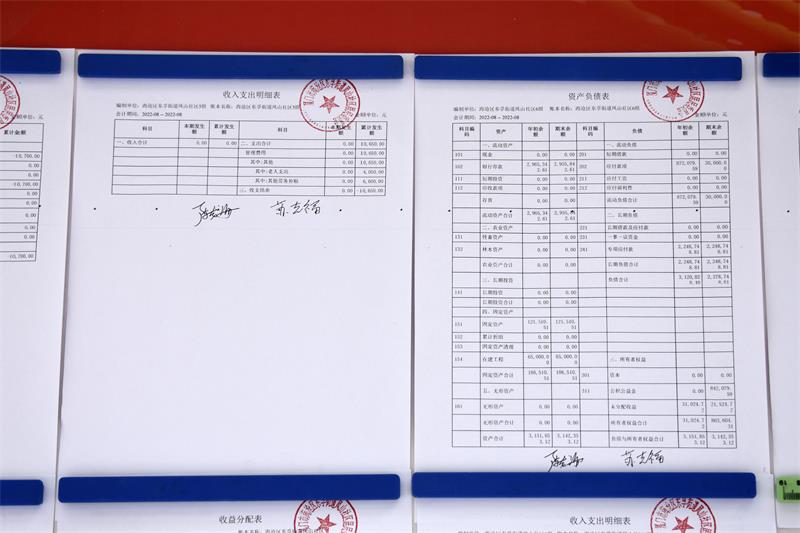 -10,700.00
0.00
0.00
-10,700.00
0.00
0.00
0.00
0.00
0.00
-10,700.00
收入支出明细表
编制单位: 海沧区东孚街道凤山社区5组 账本名称: 海沧区东孚街道凤山社区5组 金额单位: 元
会计期间: 2022-08—2022-08
科目 本期发生额 累计发生额 科目 本期发生额 累计发生额
一、收入合计 0.00 0.00 二、支出合计 0.00 10,650.00
管理费用 0.00 10,650.00
其中:其他 0.00 10,650.00
其中:老人支出 0.00 4,050.00
其中:其他劳务补贴 0.00 6,600.00
三、收支结余 0.00 -10,650.00
资产负债表
编制单位: 海沧区东孚街道凤山社区6组 账本名称: 海沧区东孚街道凤山社区6组 金额单位: 元
会计期间: 2022-08—2022-08
科目编码 资产 年初余额 期末余额 科目编码 负债 年初余额 期末余额
一、流动资产 一、流动负债
101 现金 0.00 0.00 201 短期借款 0.00 0.00
102 银行存款 2,965,342.61 2,955,842.61 202 应付款项 872,079.59 30,000.00
111 短期投资 0.00 0.00 211 应付工资 0.00 0.00
112 应收款项 0.00 0.00 212 应付福利费 0.00 0.00
存货 0.00 0.00 流动负债合计 872,079.59 30,000.00
流动资产合计 2,965,342.61 二、长期负债
二、农业资产 221 长期借款及应付款 0.00 0.00
131 牲畜资产 0.00 0.00 231 一事一议资金 0.00 0.00
132 林木资产 0.00 0.00 241 专项应付款 2,248,748.81 2,248,748.81
农业资产合计 0.00 0.00 长期负债合计 2,248,748.81 2,248,748.81
三、长期投资 负债合计 3,120,828.40 2,278,748.81
141 长期投资 0.00 0.00
长期投资合计 0.00 0.00
四、固定资产
151 固定资产 121,510.51 121,510.51
152 累计折旧 0.00 0.00
153 固定资产清理 0.00 0.00
154 在建工程 65,000.00 65,000.00 三、所有者权益
固定资产合计 186,510.51 186,510.51 301 资本 0.00 0.00
五、无形资产 311 公积公益金 0.00 842,079.59
161 无形资产 0.00 0.00 未分配收益 31,024.72 21,524.72
无形资产合计 0.00 0.00 所有者权益合计 31,024.72 863,604.31
资产合计 3,151,853.12 3,142,353.12 负债与所有者权益合计 3,151,853.12 3,142,353.12
收益分配表
收入支出明细表